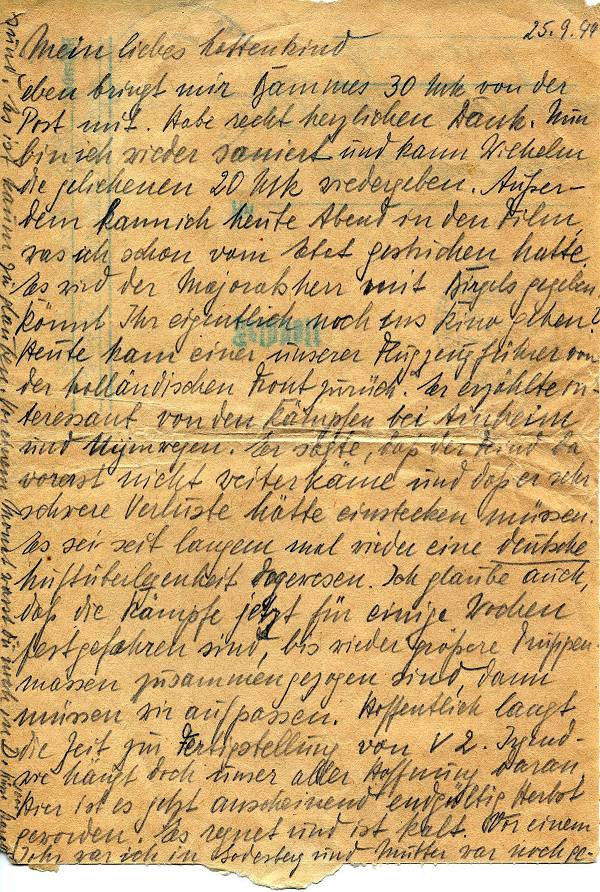 25.9.44
Mein liebes Kattenkind
eben bringt mir Hammes 30 Mk von der
Post mit. Habe recht herzlichen Dank. Nun
bin ich wieder saniert und kann Wilhelm
die geliehenen 20 Mk wiedergeben. Außer-
dem kann ich heute Abend in den Film,
was ich schon vom Etat gestrichen hatte.
Es wird der Majoratsherr mit Birgel gegeben.
Könnt Ihr eigentlich noch ins Kino gehen?
Heute kam einer unserer Flugzeugführer von
der holländischen Front zurück. Er erzählte in-
teressant von den Kämpfen bei Arnheim
und Nijmwegen. Er sagte, daß der Feind da
vorerst nicht weiterkäme und daß er sehr
schwere Verluste hätte einstecken müssen.
Es sei seit langem mal wieder eine deutsche
Luftüberlegenheit dagewesen. Ich glaube auch,
daß die Kämpfe jetzt für einige Wochen
festgefahren sind, bis wieder größere Truppen-
massen zusammengezogen sind, dann
müssen wir aufpassen. Hoffentlich langt
die Zeit zur Fertigstellung von V 2. Irgend-
wie hängt doch unser aller Hoffnung daran.
Hier ist es jetzt anscheinend endgültig Herbst
geworden. Es regnet und ist kalt. Vor einem
Jahr war ich in Godesberg und Mutter war noch ge-
sund. Es ist kaum zu